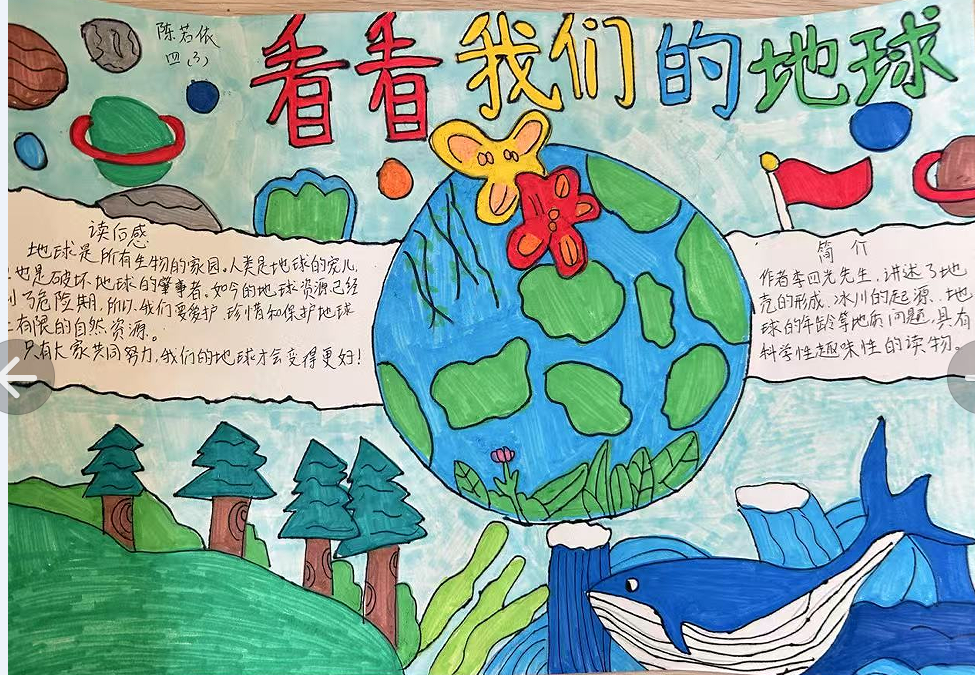 陈若依
四(3)
看看我们的地球
读后感
地球是所有生物的家园。人类是地球的宠儿,
也是破坏地球的肇事者。如今的地球资源已经
了危险期,所以,我们要爱护、珍惜和保护地球
有限的自然资源。
只有大家共同努力,我们的地球才会变得更好!
简介
作者李四光先生,讲述了地
壳的形成、冰川的起源、地
球的年龄等地质问题,具有
科学性趣味性的读物。